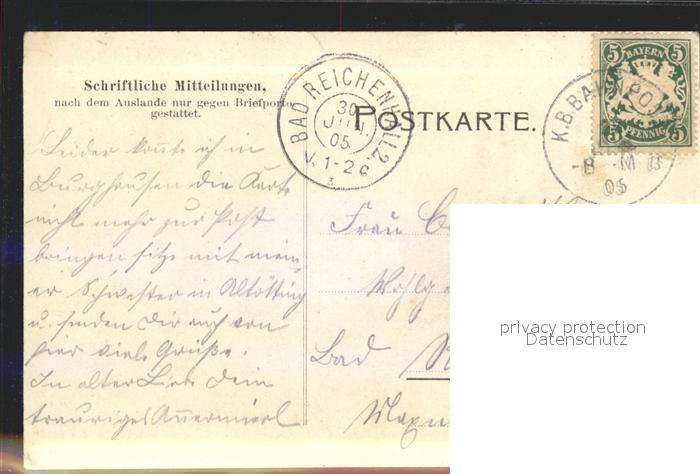 Schriftliche Mitteilungen,
nach dem Auslande nur gegen Briefporto
gestattet.
POSTKARTE.
BAD REICHENHALL 2
30
JUN.
05.
V. 1-2
K.B.BAHNPO
05
5 BAYERN 5
5 PFENNIG 5
Leider konnte ich in
Burghausen die Karte
nicht mehr zur Post
bringen sitze mit mein-
er Schwester in Altötting
u. senden Dir auch von
hier viele Grüße.
In alter Liebe Dein
trauriges Annermierl
Frau
Bad
privacy protection
Datenschutz